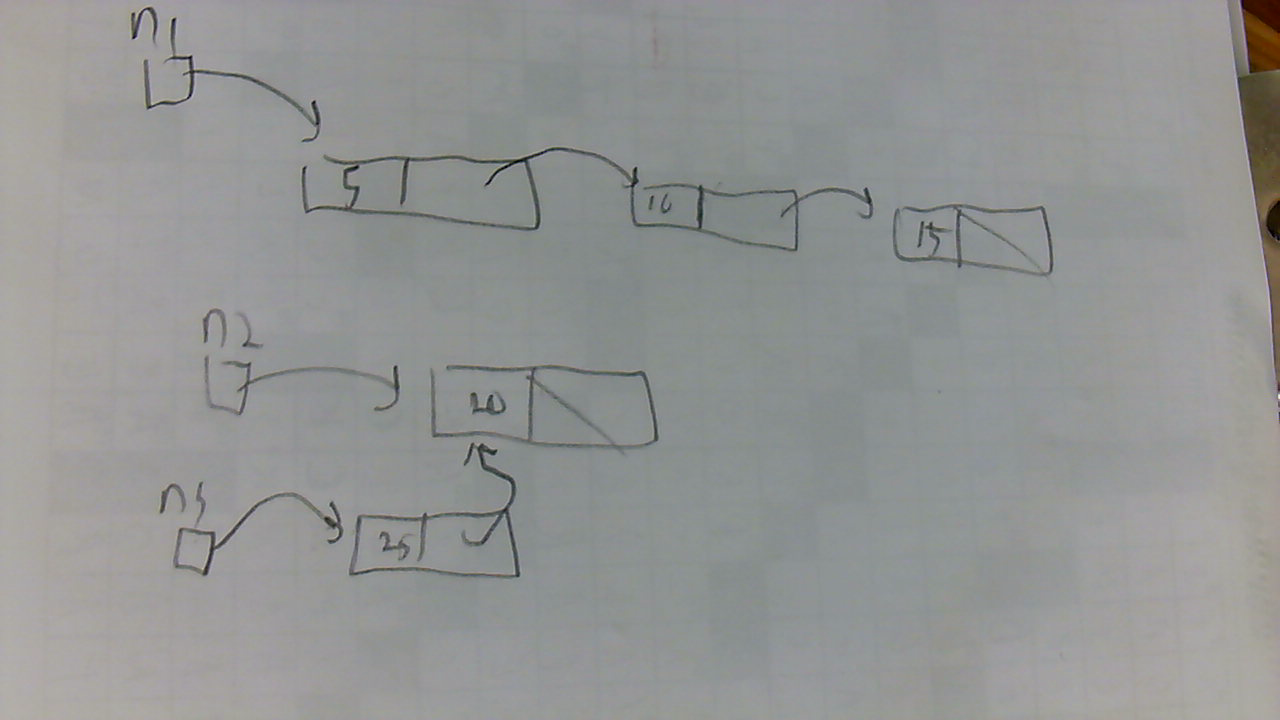 n1
5 10 15
n2
20
25